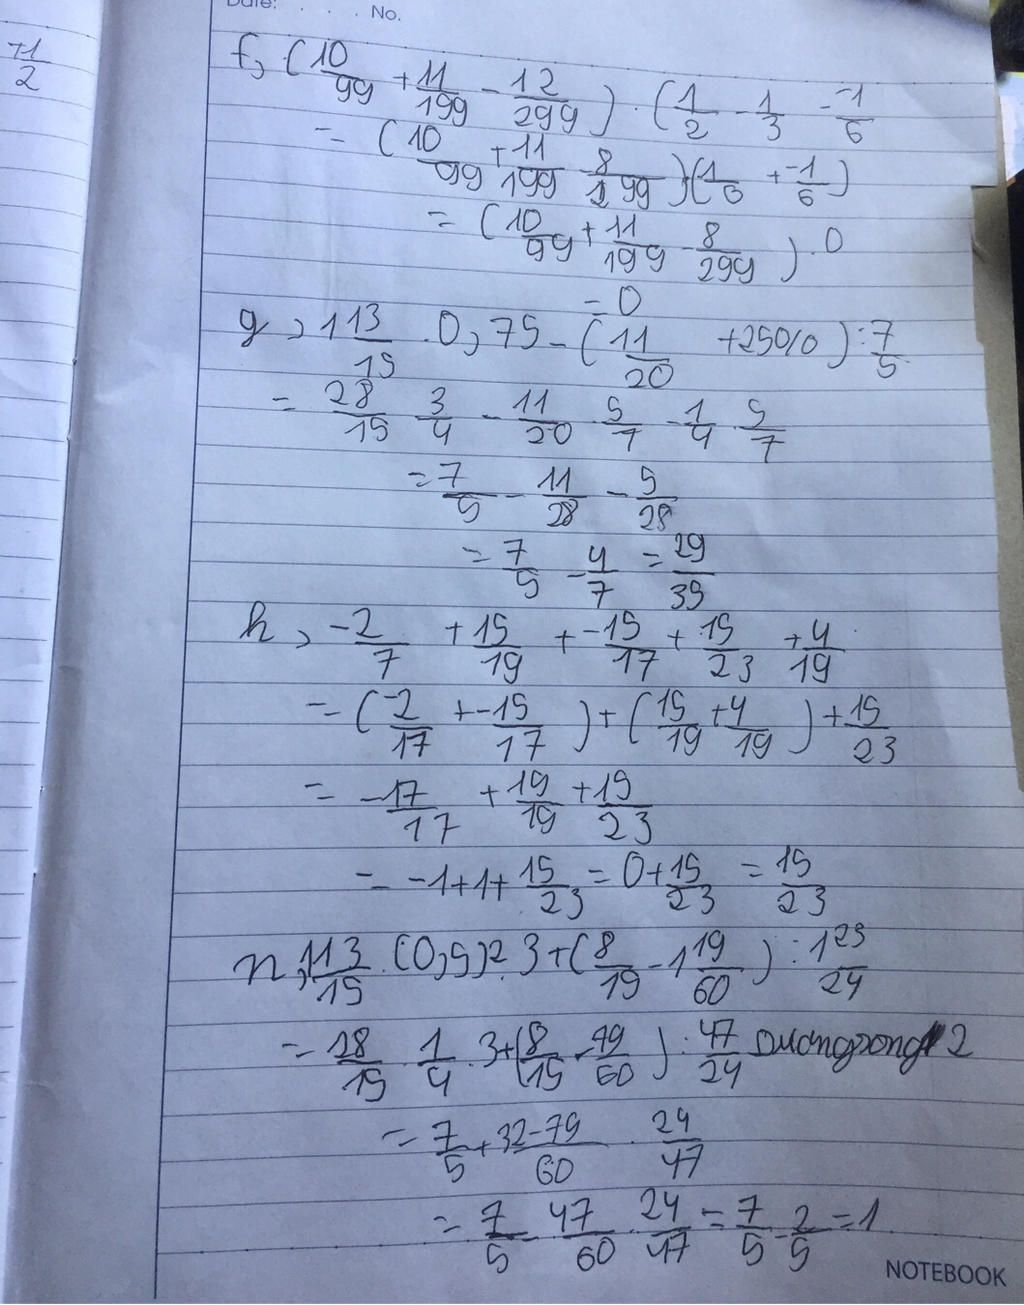 -1/2
Date: . . . . No.
f, (10/99 + 11/199 - 12/299) . (1/2 - 1/3 - -1/6
= (10/99 + 11/199 - 8/299)(1/6 + -1/6)
= (10/99 + 11/199 - 8/299) . 0
= 0
g, 1 13/15 . 0,75 - (11/20 + 25%) : 7/5
= 28/15 . 3/4 - 11/20 . 5/7 - 1/4 . 5/7
= 7/5 - 11/28 - 5/28
= 7/5 - 4/7 = 29/35
h, -2/7 + 15/19 + -15/17 + 15/23 + 4/19
= (-2/17 + -15/17) + (15/19 + 4/19) + 15/23
= -17/17 + 19/19 + 15/23
= -1+1+ 15/23 = 0+ 15/23 = 15/23
n, 1 13/15 . (0,5)2 . 3 + (8/19 - 1 19/60) : 1 23/24
= 28/15 . 1/4 . 3 + (8/15 - 79/60) : 47/24 Duongzong 2
= 7/5 + 32-79/60 . 24/47
= 7/5 - 47/60 . 24/47 = 7/5 - 2/5 = 1
NOTEBOOK